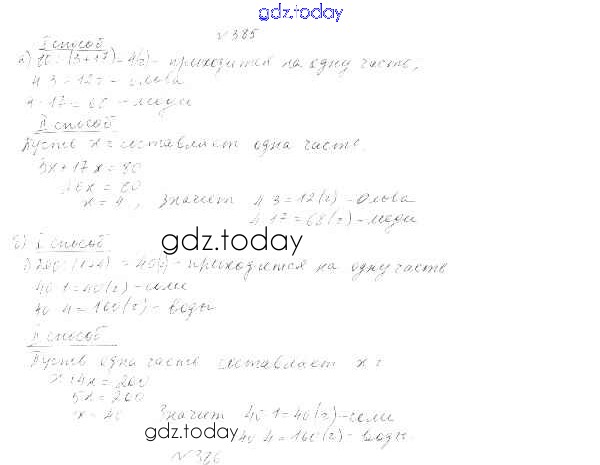 gdz.today
№385
I способ
а) 80:(3+17)=4(г) - приходится на одну часть;
4·3=12г - олова
4·17=68 - меди
II способ
Пусть х г составляет одна часть.
3х+17х=80
20х=80
х=4, Значит 4·3=12(г) - олова
4·17=68(г) - меди
gdz.today
б) I способ
1) 200:(1+4)=40(г) - приходится на одну часть
40·1=40(г) - соли
40·4=160(г) - воды
II способ
Пусть одна часть составляет х г
х+4х=200
5х=200
х=40 Значит 40·1=40(г) - соли
gdz.today 40·4=160(г) - воды.
№386